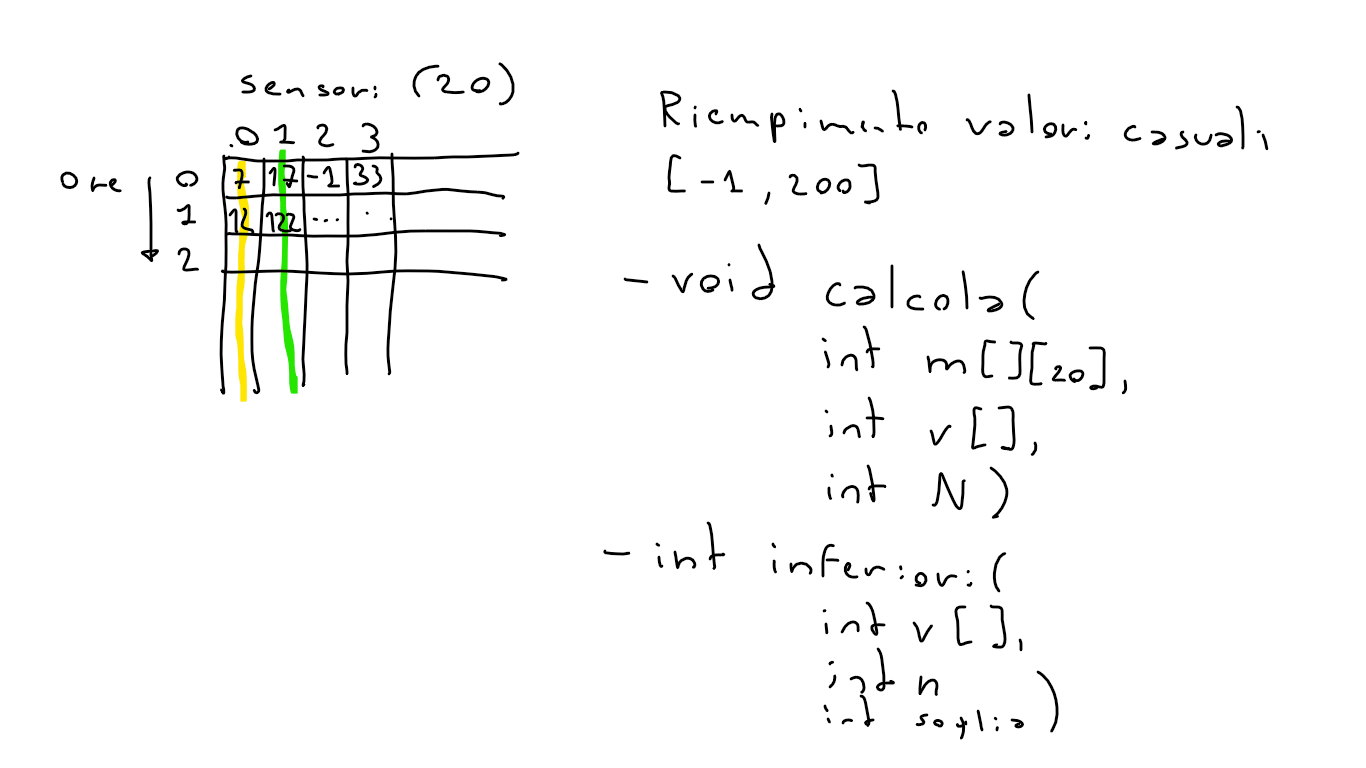 sensori (20)
0 1 2 3
ore 0 7 17 -1 33
1 12 122 ... ..
2
Riempimento valori casuali
[-1, 200]
- void calcola(
int m[][20],
int v[],
int N)
- int inferiori(
int v[],
int n
int soglia)